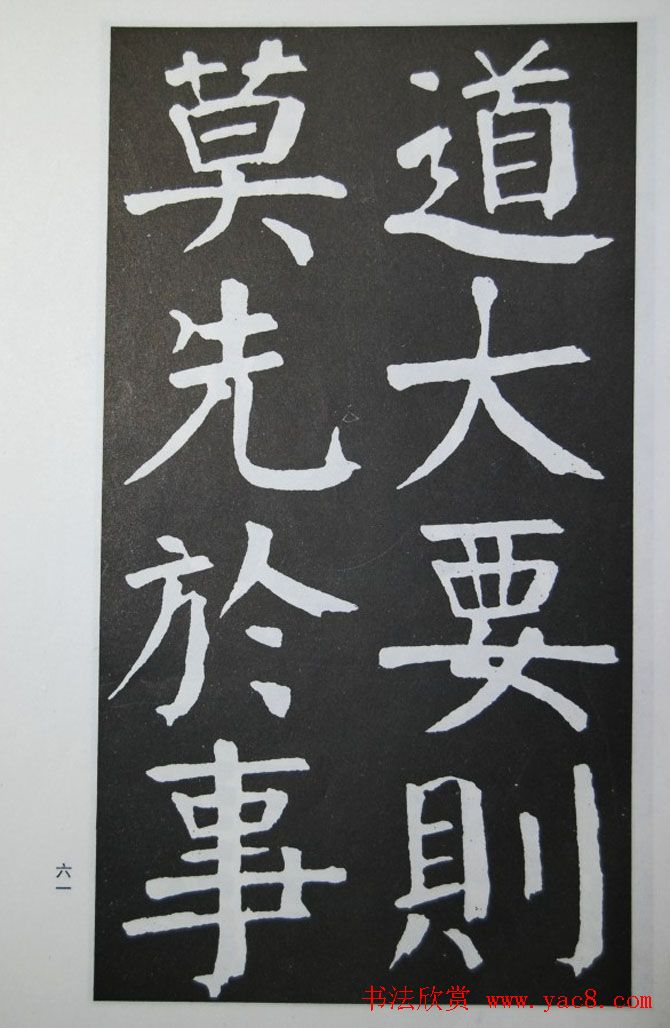 道大要則
莫先於事
六一
书法欣赏 www.yac8.com